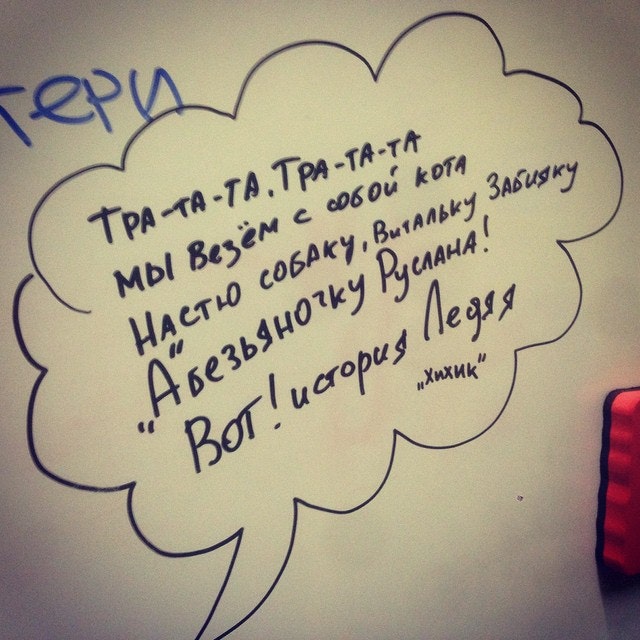 тери
Тра-та-та, Тра-та-та
мы везём с собой кота
Настю собаку, Витальку Забияку
"Абезьяночку Руслана!
"Вот! история Ледяя
„хихик"